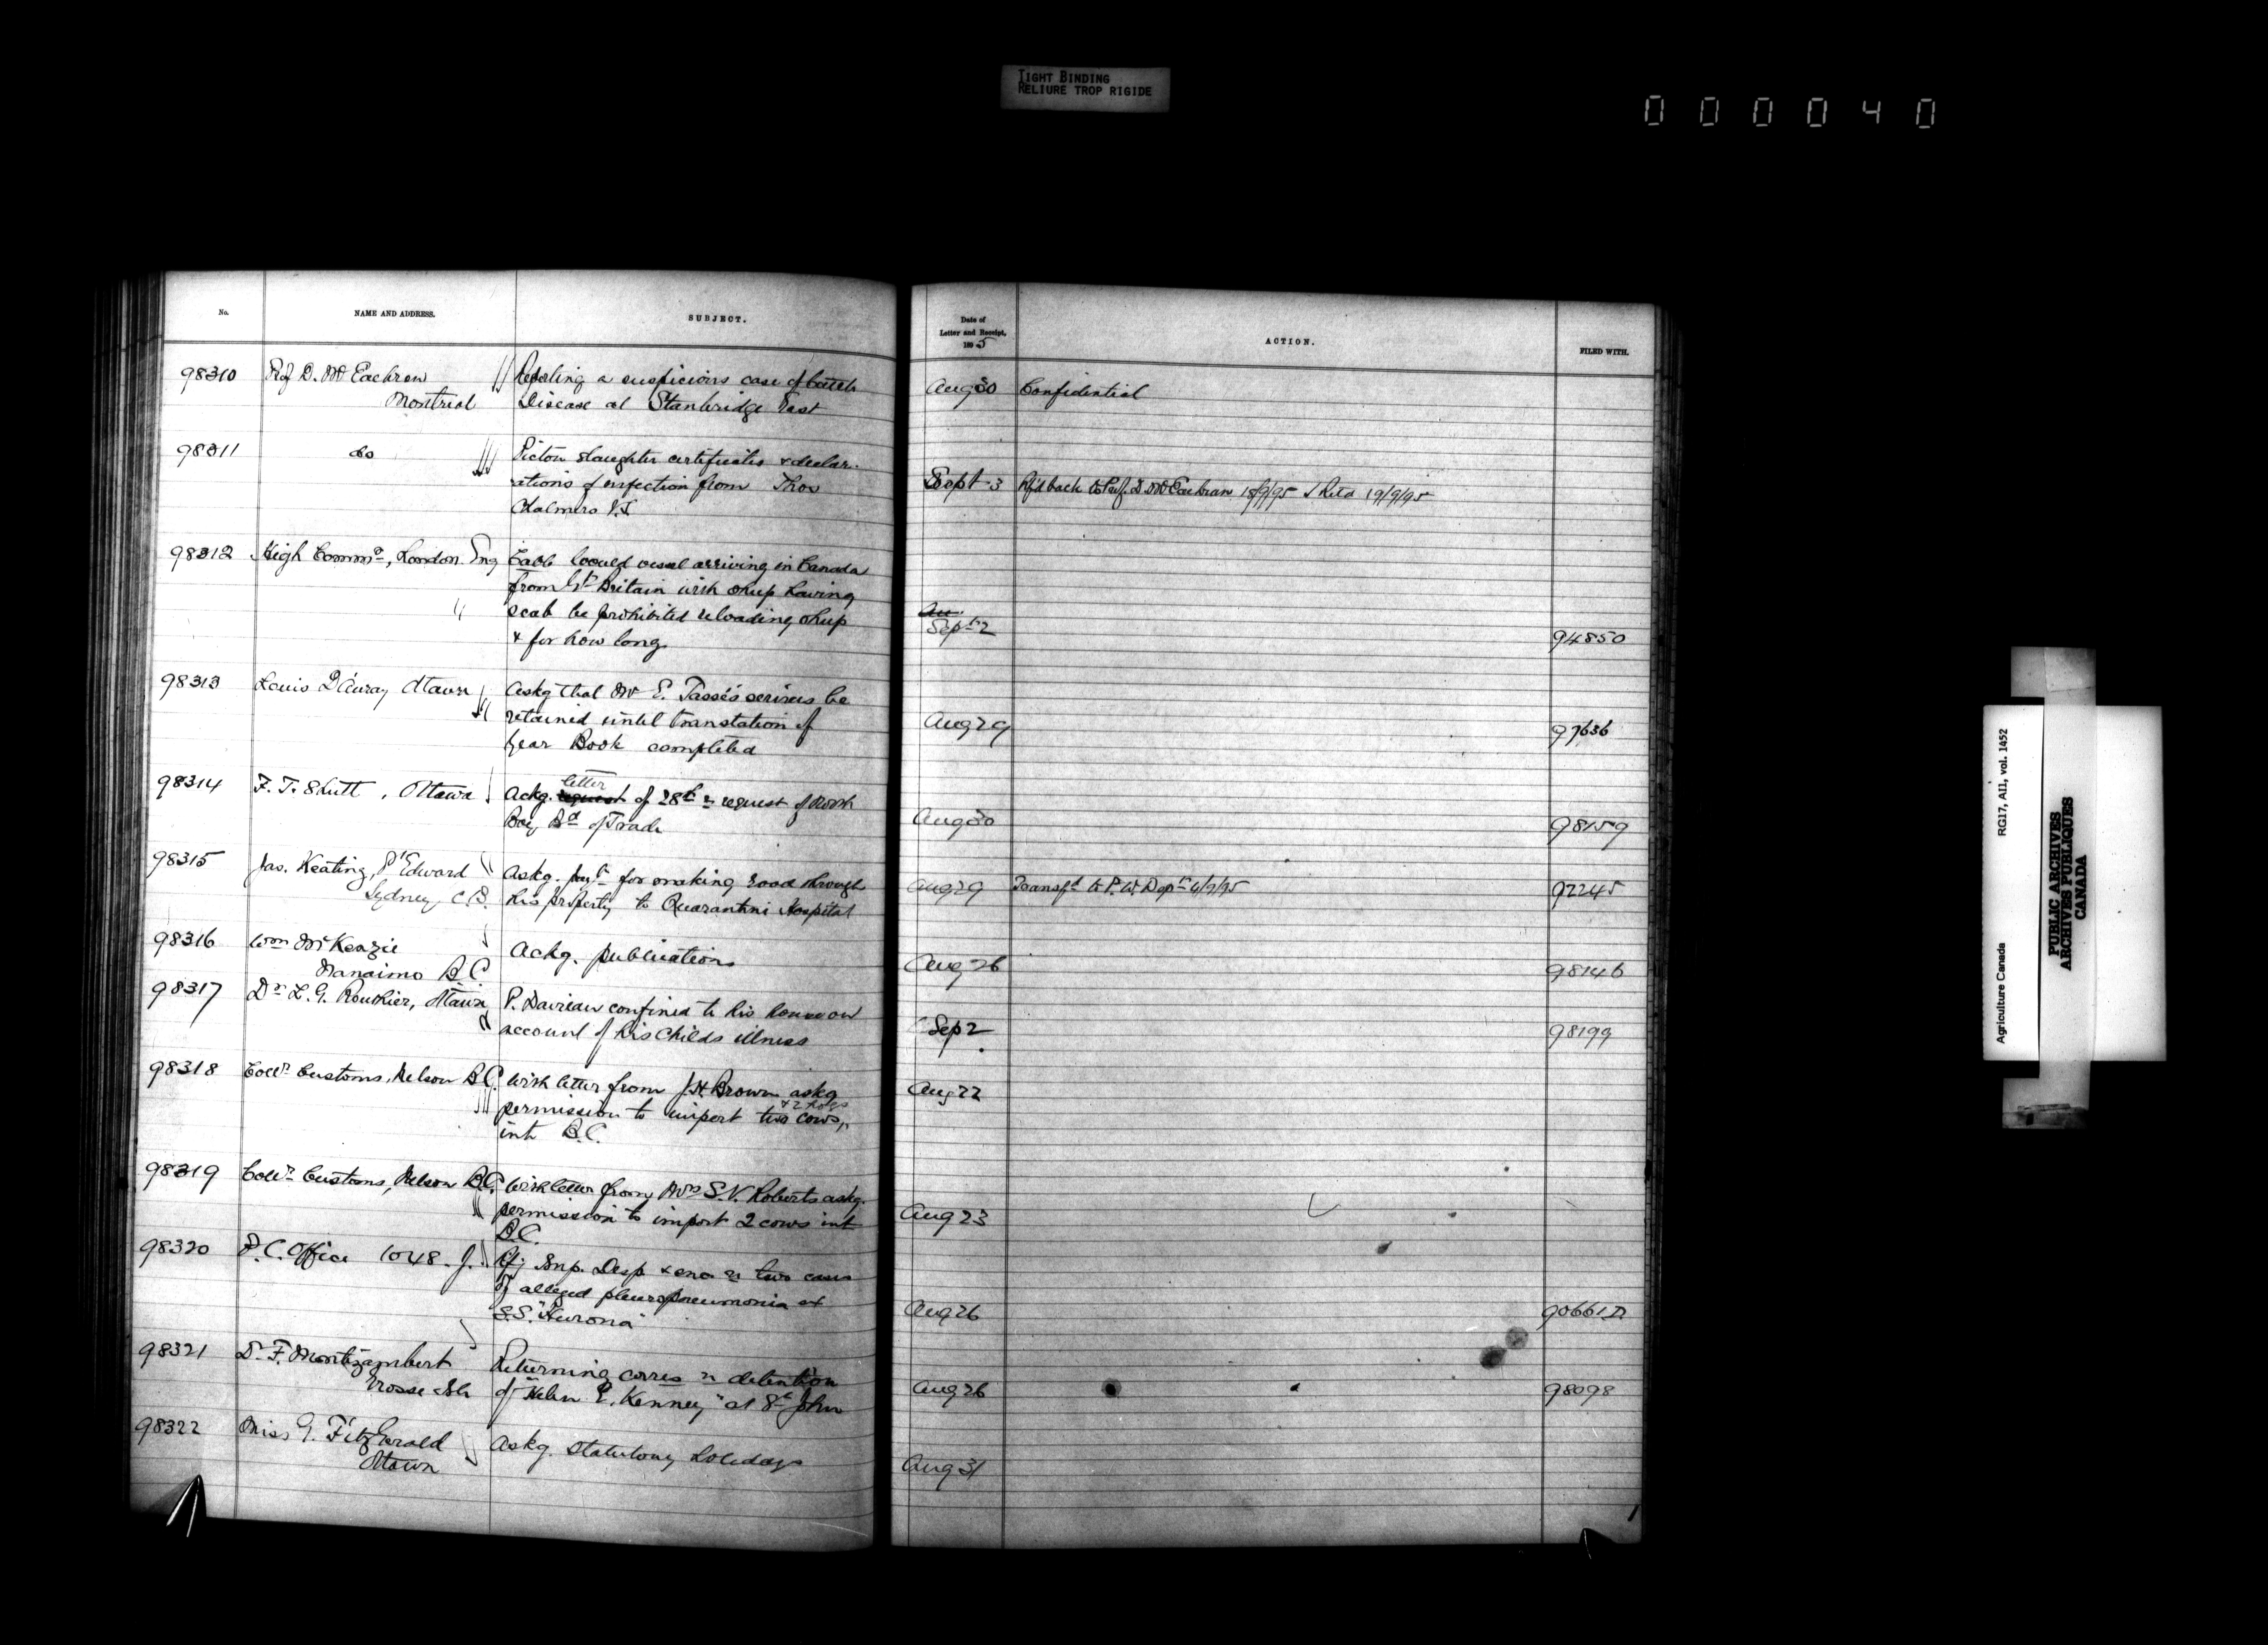 TIGHT BINDING
RELIURE TROP RIGIDE
000040
No.
NAME AND ADDRESS.
SUBJECT.
Date of
Letter and Receipt,
1895
ACTION.
FILED WITH.
98310 Prof D. McEachran Reporting a suspicious case of cattle
Montreal Disease at Stanbridge East
Aug 30 Confidential
98311 do Pictou slaughter certificates & declar-
ations of infection from Thos
Chalmers V.S.
Sept 3 Rfd back to Prof. D. McEachran 18/9/95 Retd 19/9/95
98312 High Commr, London Eng Cable Would vessel arriving in Canada
from Gt Britain with sheep having
scab be prohibited reloading sheep
& for how long
Au
Sept 2 94850
98313 Louis D'Auray Ottawa Askg that Mr E. Tassé's services be
retained until translation of
Year Book completed
Aug 29 97636
98314 F. T. Shutt, Ottawa Ackg. request letter of 28th re request of North
Bay Bd of Trade
Aug 30 98159
98315 Jas. Keating, Pt Edward Askg. payt for making road through
Sydney C.B. his property to Quarantine Hospital
Aug 29 Transfd to P. W. Dept 4/9/95 92245
98316 Wm McKenzie Ackg. publications
Nanaimo B.C.
Aug 26 98146
98317 Dr L. G. Routhier, Ottawa P. confined to his house on
account of his childs illness
Sep 2 98199
98318 Collr Customs, Nelson B.C. With letter from J. H. Brown askg
permission to import two cows & 2 hogs
into B.C.
Aug 22
98319 Collr Customs, Nelson B.C. With letter from Mrs S. V. Roberts askg.
permission to import 2 cows into
B.C.
Aug 23
98320 P. C. Office 1048. J. Rfg Imp. Desp & enc. re two cases
of alleged pleuropneumonia ex
S.S. "Hurona"
Aug 26 90661 D
98321 Dr F. Montizambert Returning corres re detention
Grosse Isle of "Helen E. Kenney" at St John
Aug 26 98098
98322 Miss G. FitzGerald Askg. Statutory Holidays
Ottawa
Aug 31
Agriculture Canada RG17, AII, vol. 1452
PUBLIC ARCHIVES
ARCHIVES PUBLIQUES
CANADA